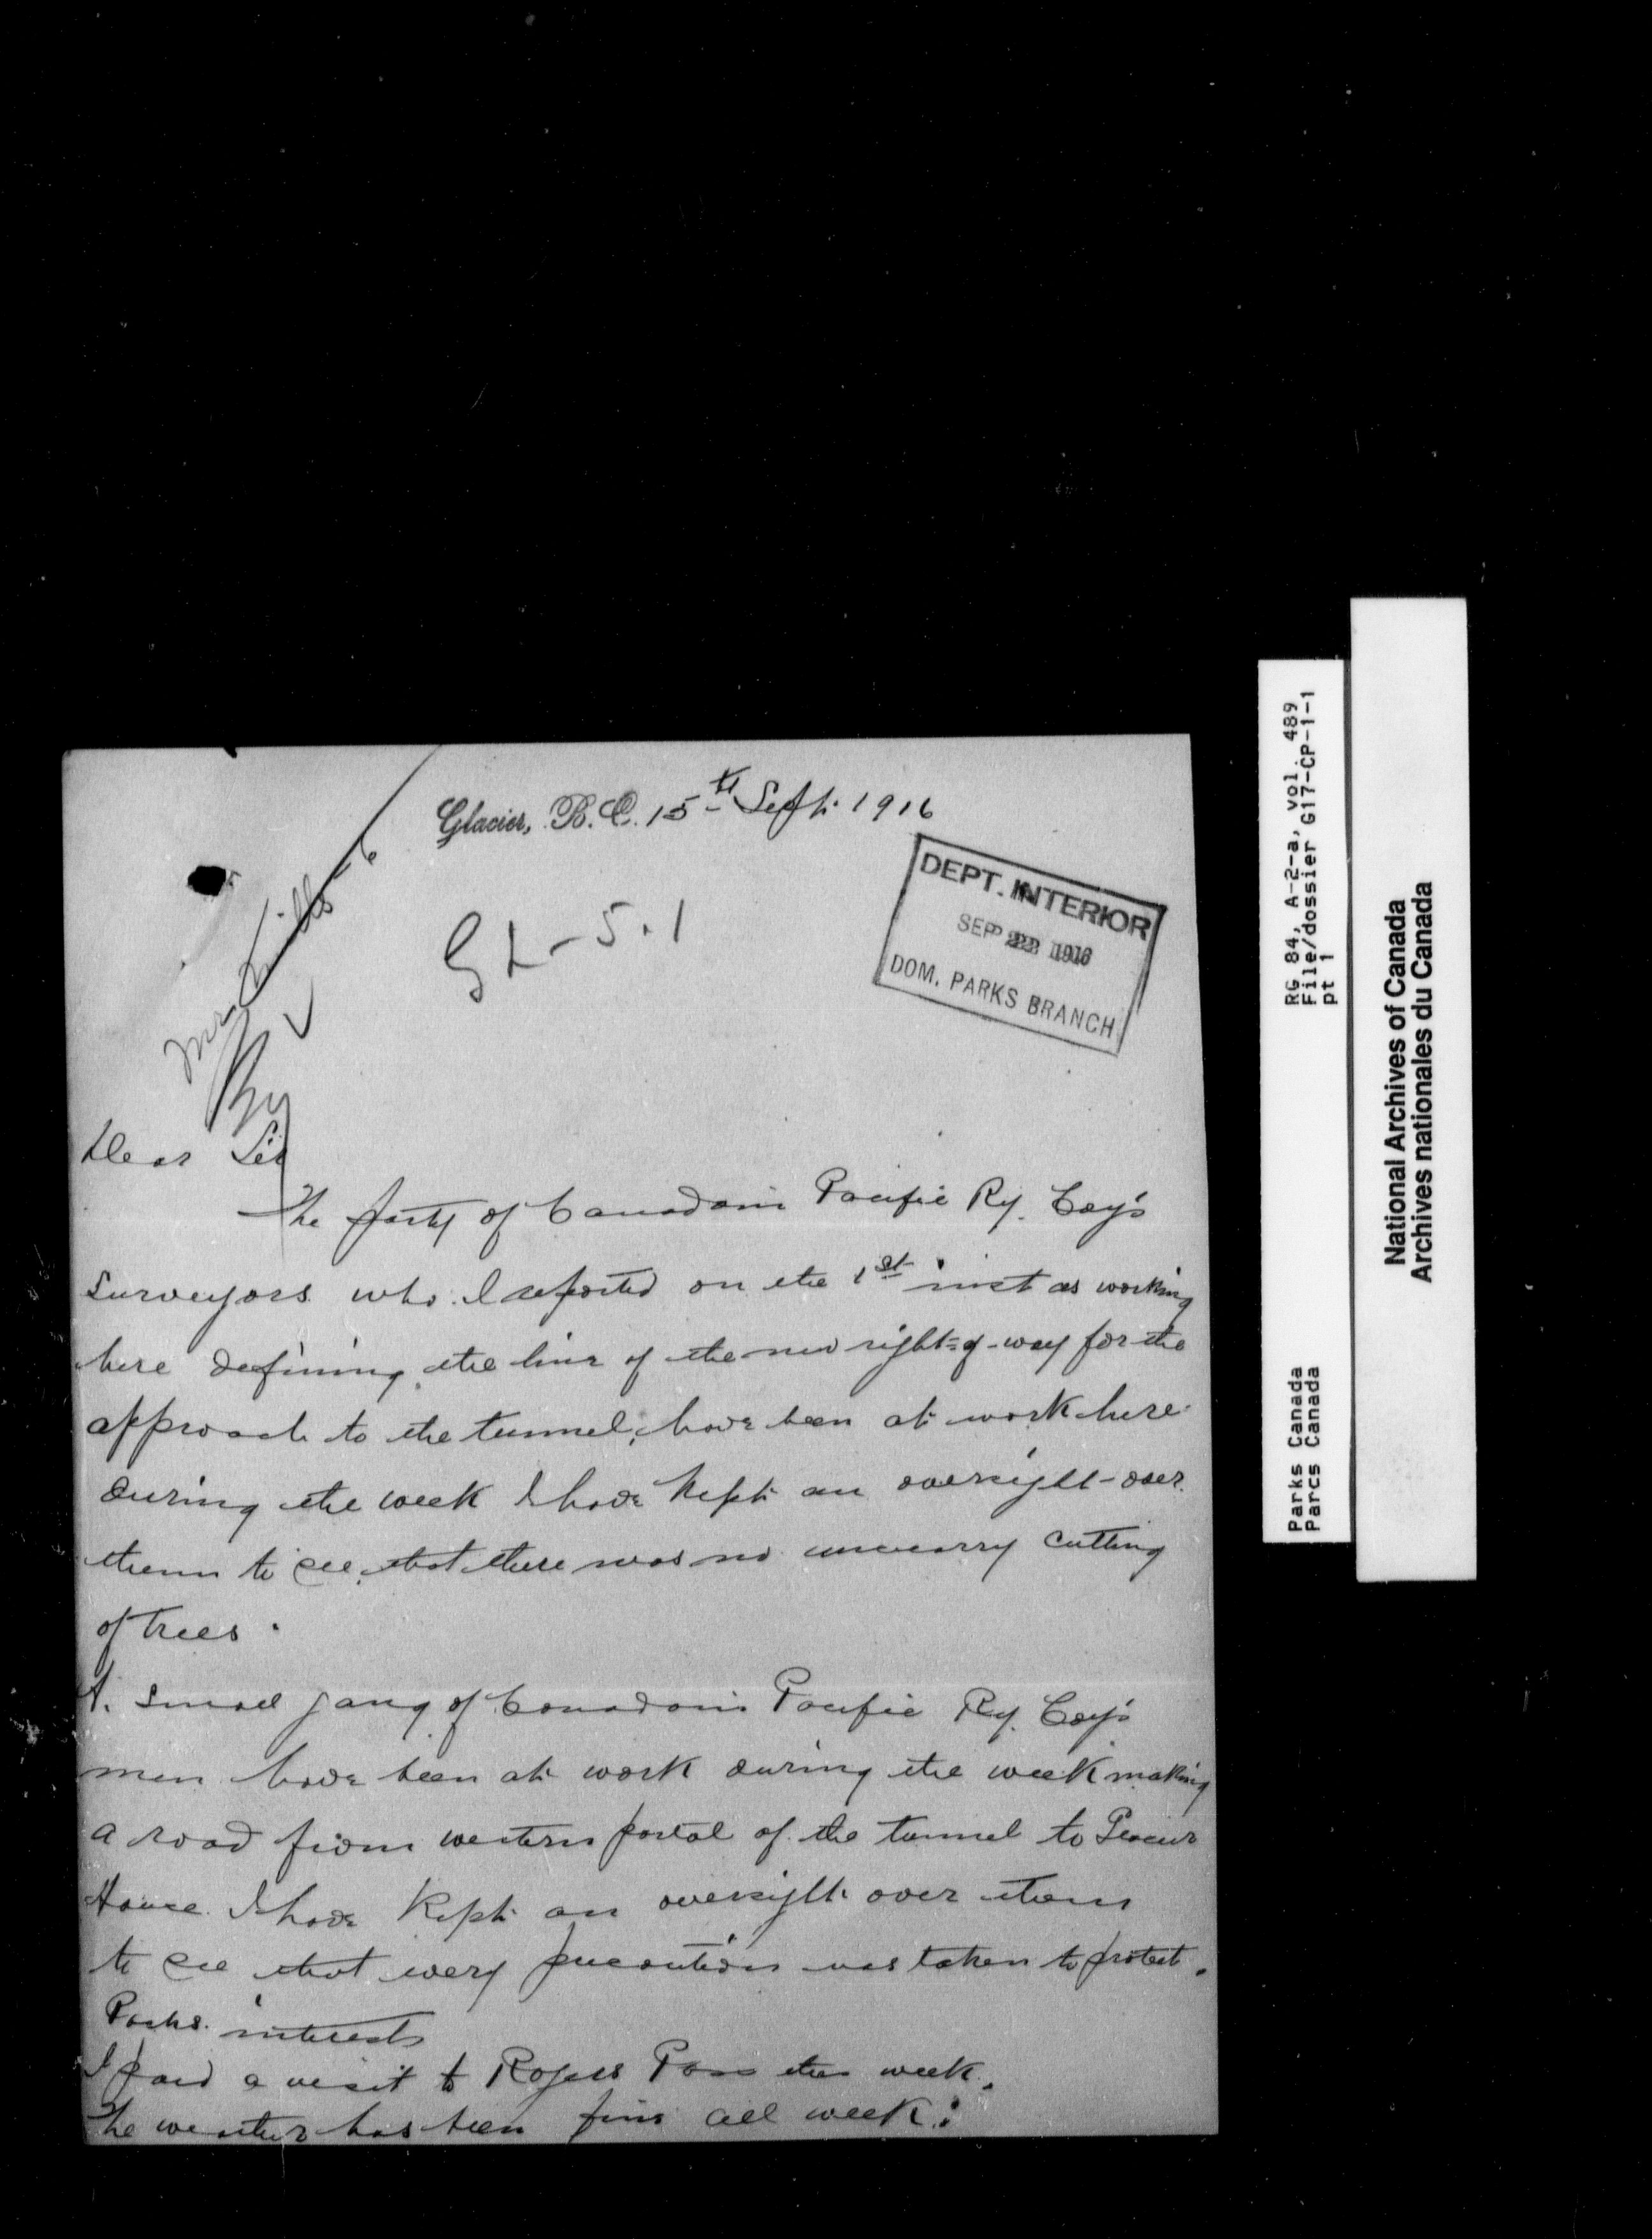 Glacier, B.C. 15th Sept. 1916
GL-5.1
DEPT. INTERIOR
SEP 22 1916
DOM. PARKS BRANCH
Mr
Dear Sir
The party of Canadain Pacific Ry. Coy's
surveyors who I reported on the 1st inst as working
here defining the line of the new right-of-way for the
approach to the tunnel, have been at work here
during the week I have kept an oversight over
them to see that there was no unnecarry cutting
of trees.
A small gang of Canadain Pacific Ry. Coy's
men have been at work during the week making
a road from western portal of the tunnel to
House I have kept an oversight over them
to see that every precaution was taken to protect.
Parks interests
I paid a visit to Rogers Pass this week.
The weather has been fine all week.
RG 84, A-2-a, vol. 489
File/dossier G17-CP-1-1
pt 1
Parks Canada
Parcs Canada
National Archives of Canada
Archives nationales du Canada